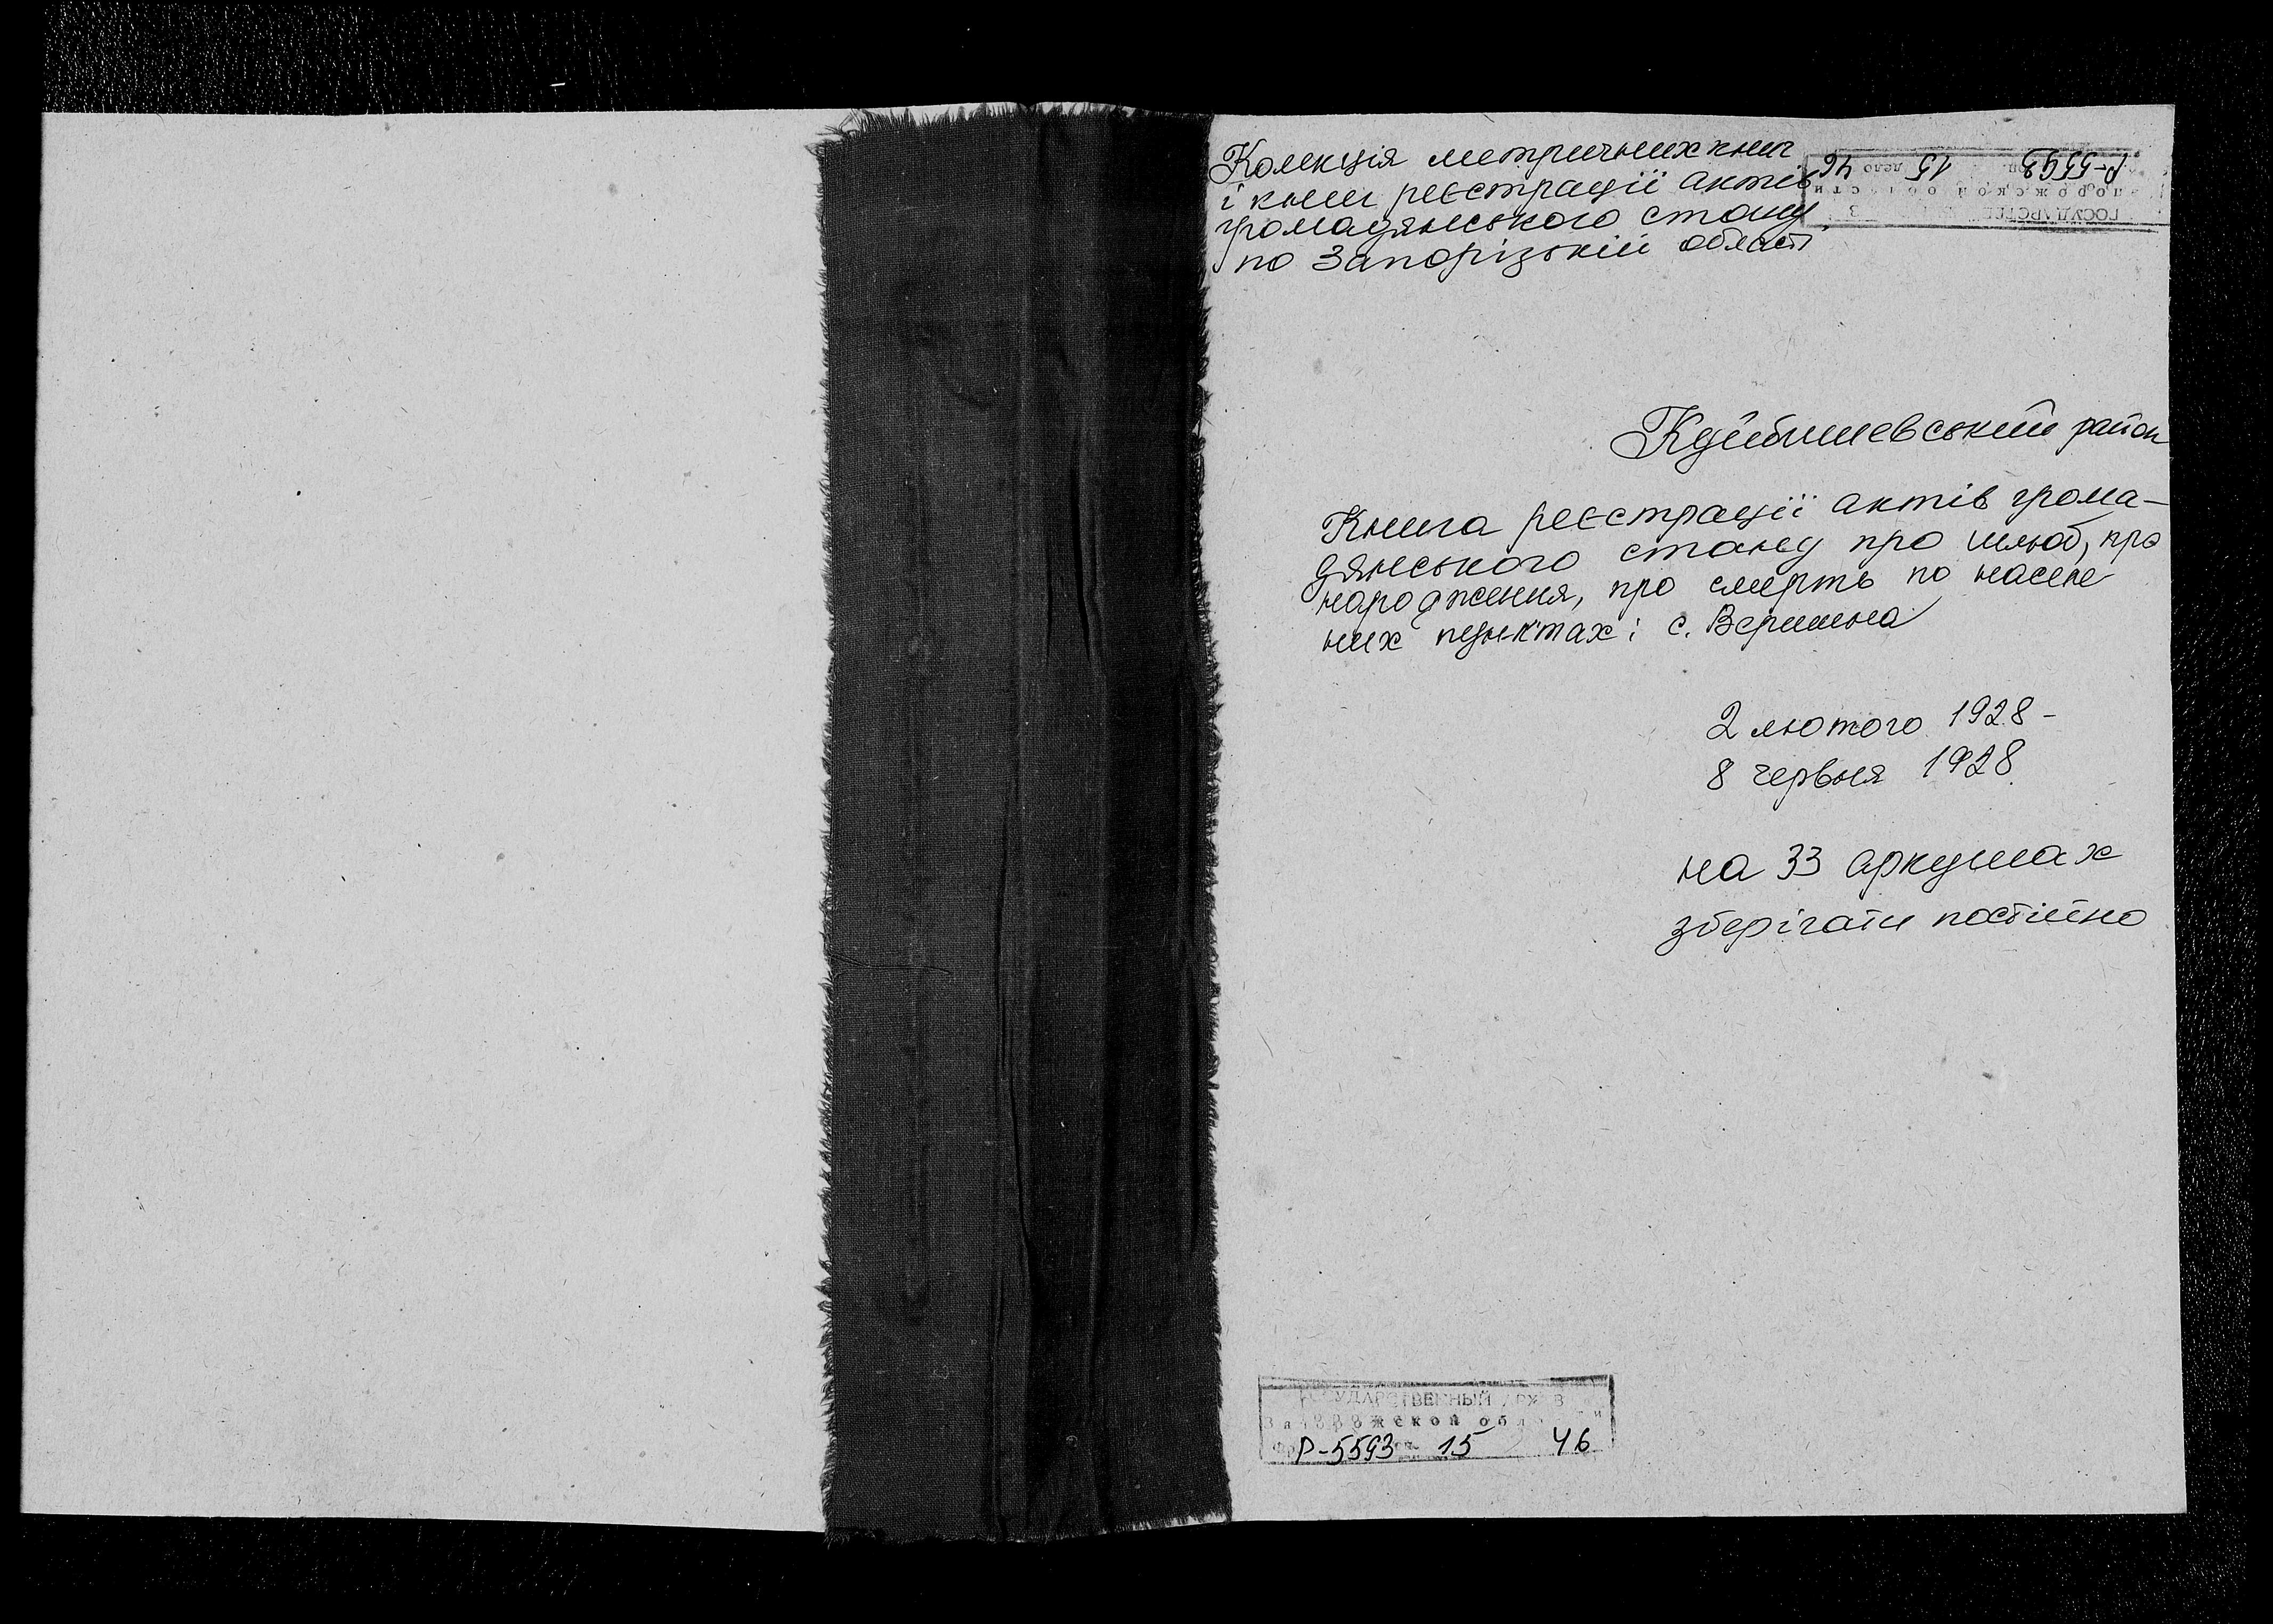 Колекція метричних книг
і книг реєстрації актів
громадянського стану
по Запорізькій області
Р-5593 15 дело 46
Куйбишевський район
Книга реєстрації актів грома-
дянського стану про шлюб, про
народження, про смерть по населе
них пунктах: с. Вершина
2 лютого 1928 -
8 червня 1928
на 33 аркушах
зберігати постійно
ГОСУДАРСТВЕННЫЙ АРХИВ
Запорожской области
Р-5593 15 46